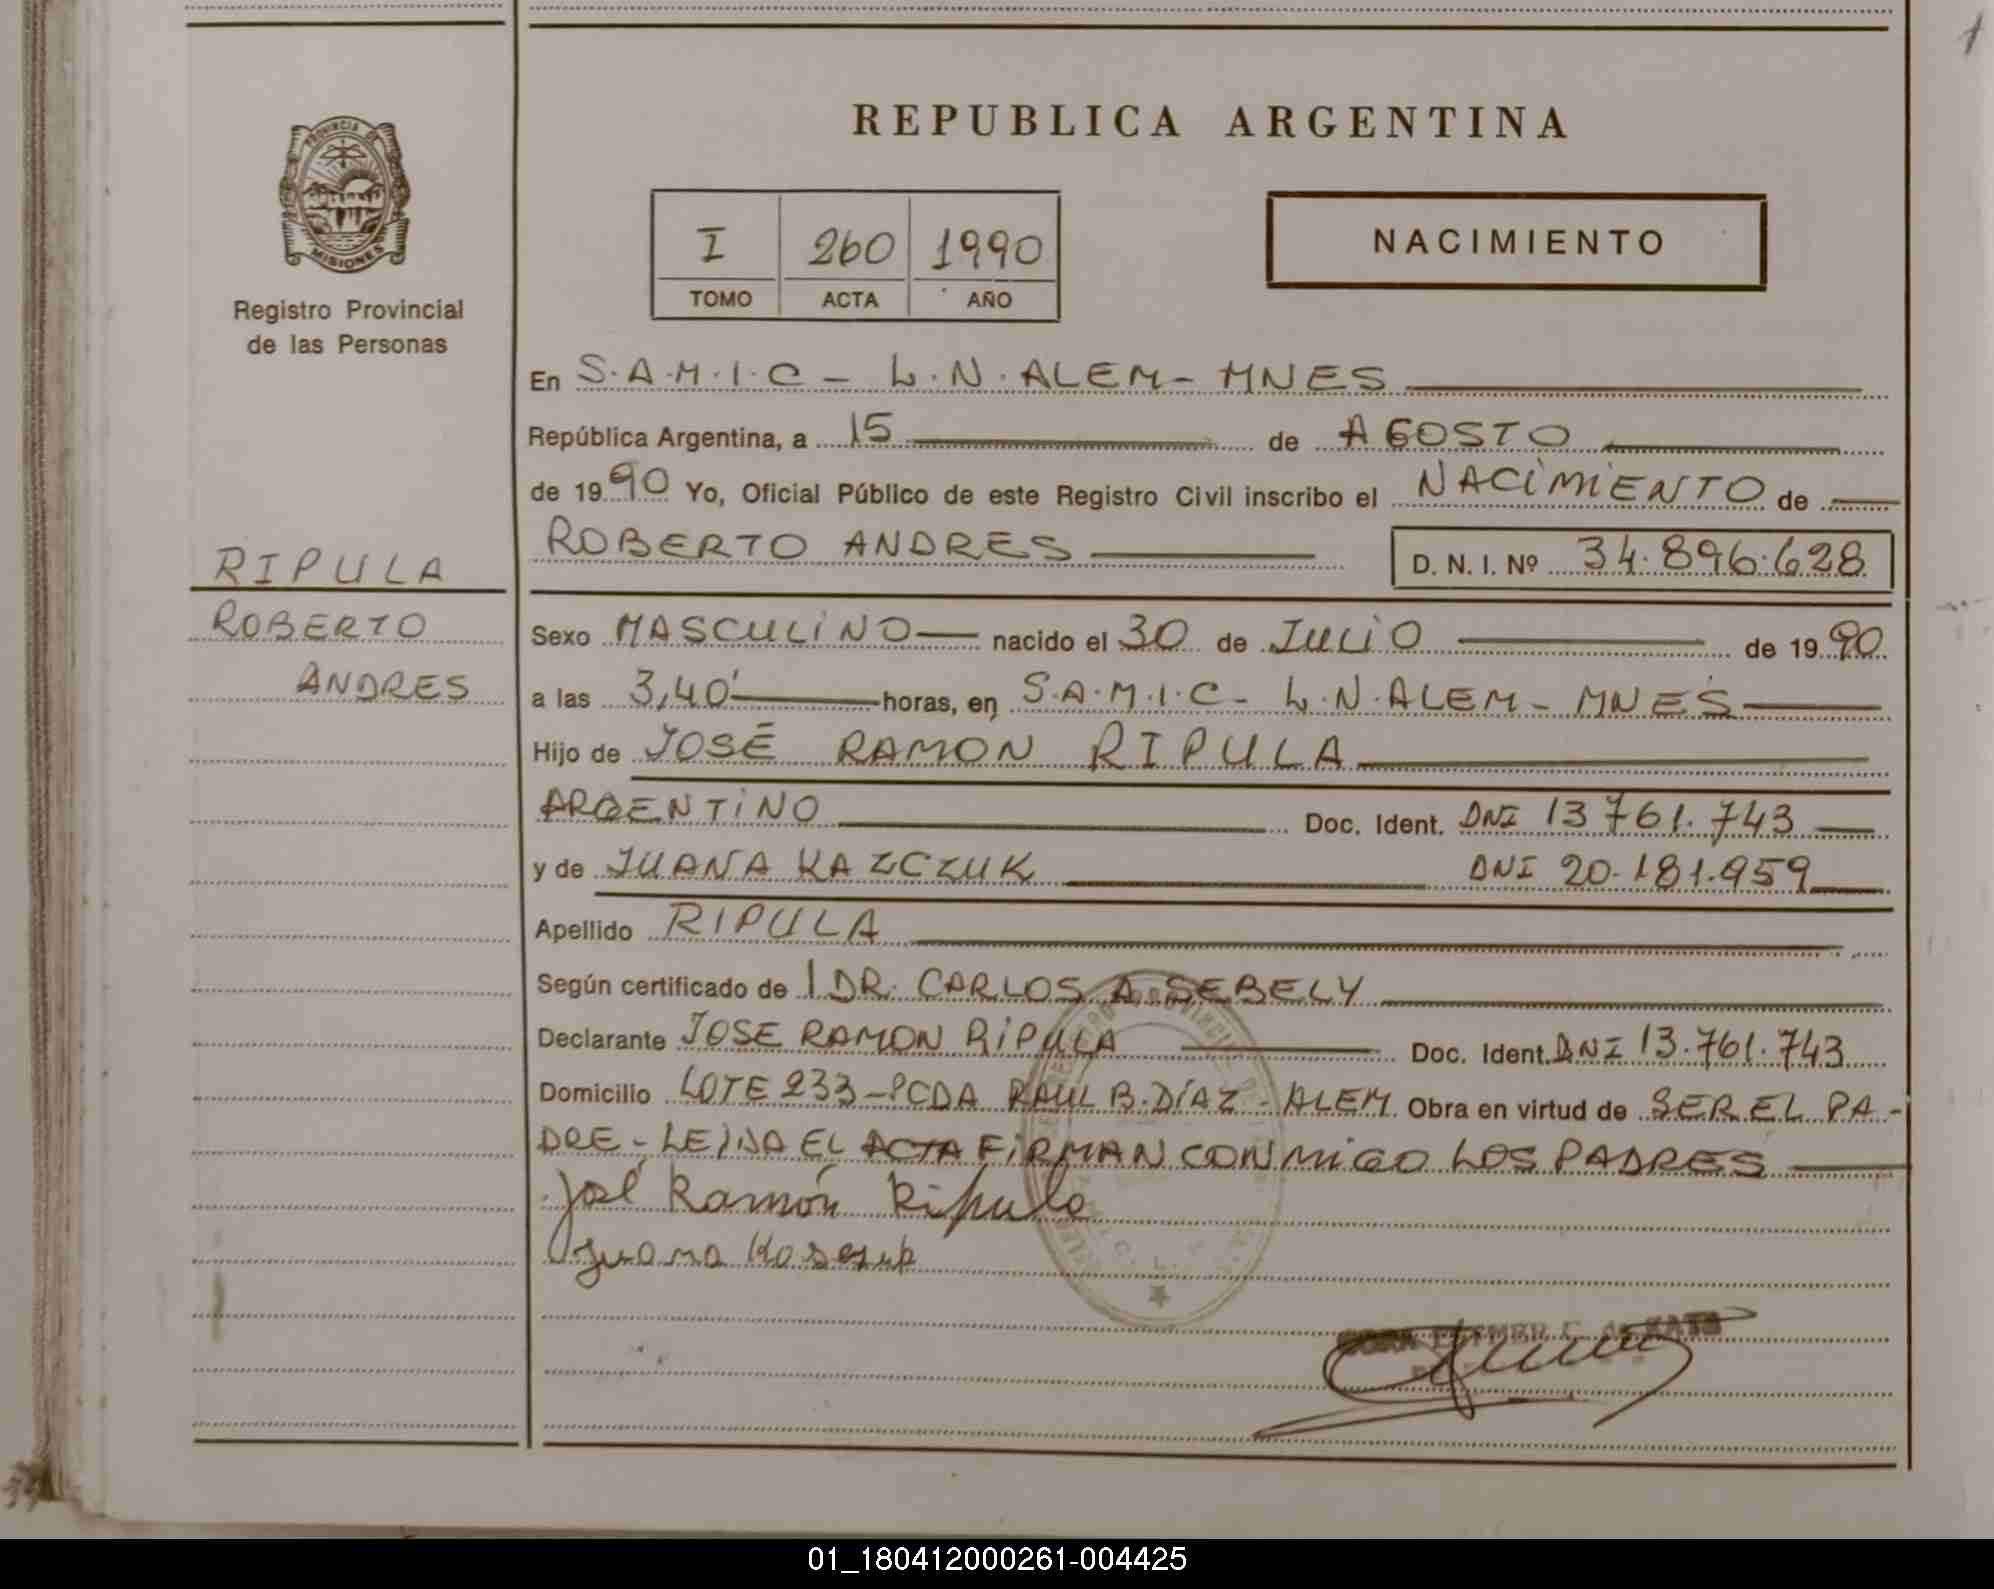 REPUBLICA ARGENTINA
PROVINCIA DE
MISIONES
Registro Provincial
de las Personas
I 260 1990
TOMO ACTA AÑO
NACIMIENTO
En S.A.M.I.C - L.N.ALEM - MNES
República Argentina, a 15 de AGOSTO
de 1990 Yo, Oficial Público de este Registro Civil inscribo el NACIMIENTO de
ROBERTO ANDRES D. N. I. Nº 34.896.628
RIPULA
ROBERTO
ANDRES
Sexo MASCULINO nacido el 30 de JULIO de 1990
a las 3,40' horas, en S.A.M.I.C - L.N.ALEM - MNES
Hijo de JOSÉ RAMON RIPULA
ARGENTINO Doc. Ident. DNI 13 761.743
y de JUANA KAZCZUK DNI 20.181.959
Apellido RIPULA
Según certificado de 1 DR. CARLOS A SEBELY
Declarante JOSE RAMON RIPULA Doc. Ident. DNI 13.761.743
Domicilio LOTE 233 - PCDA RAUL B. DÍAZ - ALEM Obra en virtud de SER EL PA-
DRE - LEIDA EL ACTA FIRMAN CONMIGO LOS PADRES
José Ramón Ripula
Juana
01_180412000261-004425